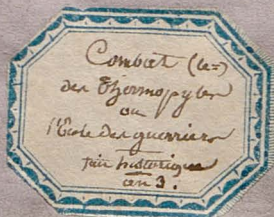 Combat (le=)
des Thermopyles
ou
l'Ecole des guerriers
fait historique
an 3.